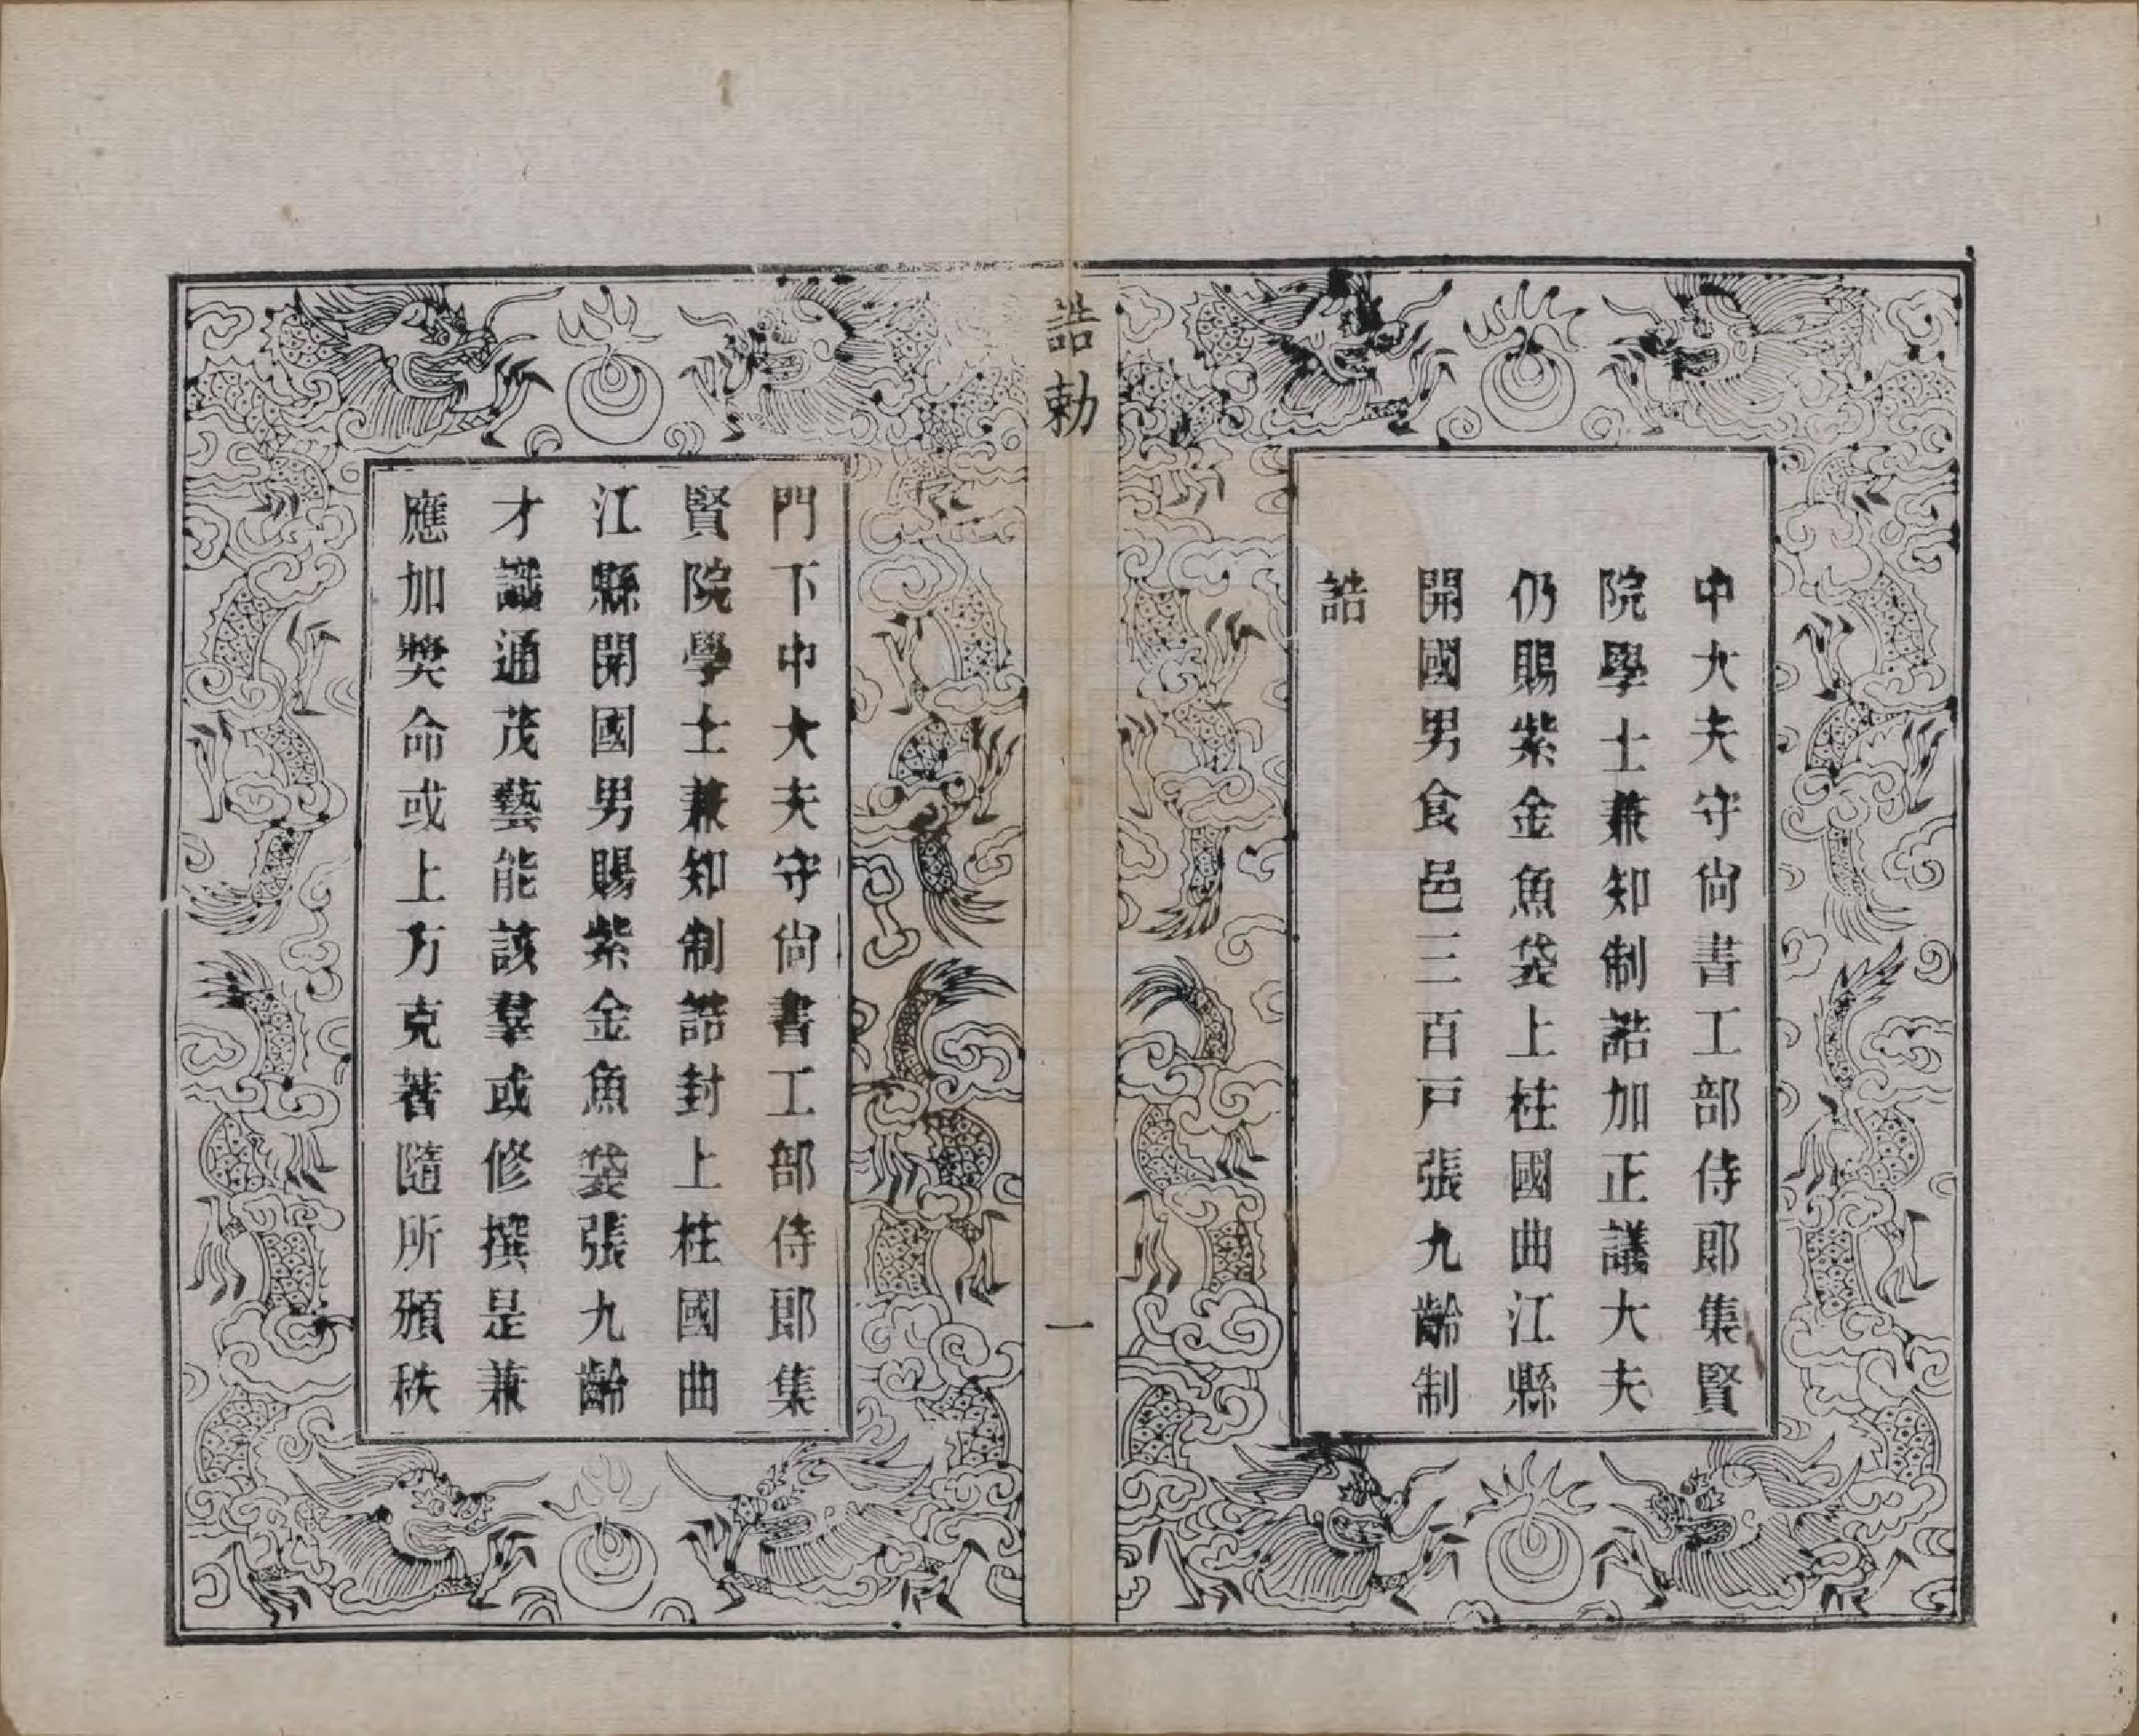 中大夫守尚書工部侍郎集賢
院學士兼知制誥加正議大夫
仍賜紫金魚袋上柱國曲江縣
開國男食邑三百戸張九齡制
誥
誥勅
一
門下中大夫守尚書工部侍郎集
賢院學士兼知制誥封上柱國曲
江縣開國男賜紫金魚袋張九齡
才識通茂藝能該羣或修撰是兼
應加獎命或上方克著隨所頒秩